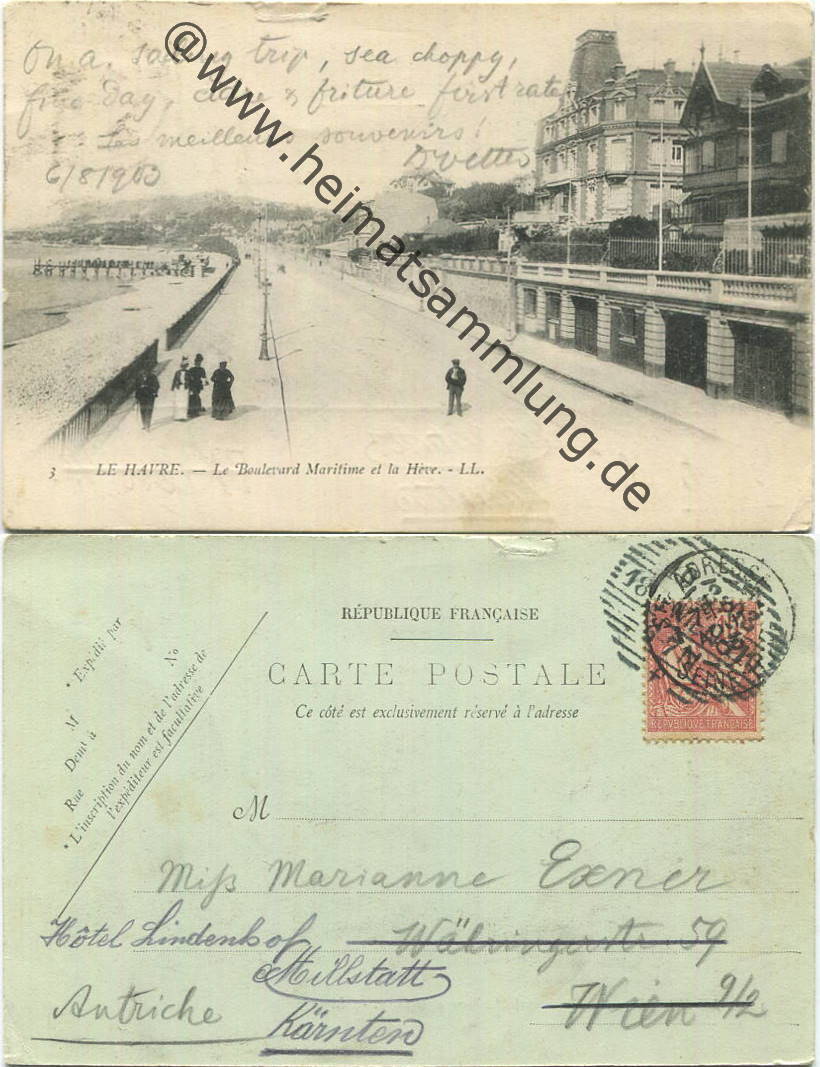 On a sailing trip, sea choppy,
fine day, cidre & friture first rate
Les meilleurs souvenirs!
Yvette
6/8 1903
@www.heimatsammlung.de
3 LE HAVRE. — Le Boulevard Maritime et la Hève. - LL.
RÉPUBLIQUE FRANÇAISE
CARTE POSTALE
Ce côté est exclusivement réservé à l'adresse
• Expédié par
M
No
Demt à
Rue
• L'inscription du nom et de l'adresse de
l'expéditeur est facultative
REPVBLIQVE FRANÇAISE
M
Miß Marianne Exner
Hôtel Lindenhof Währingerstr. 59
Millstatt
Autriche Wien 9/2
Kärnten